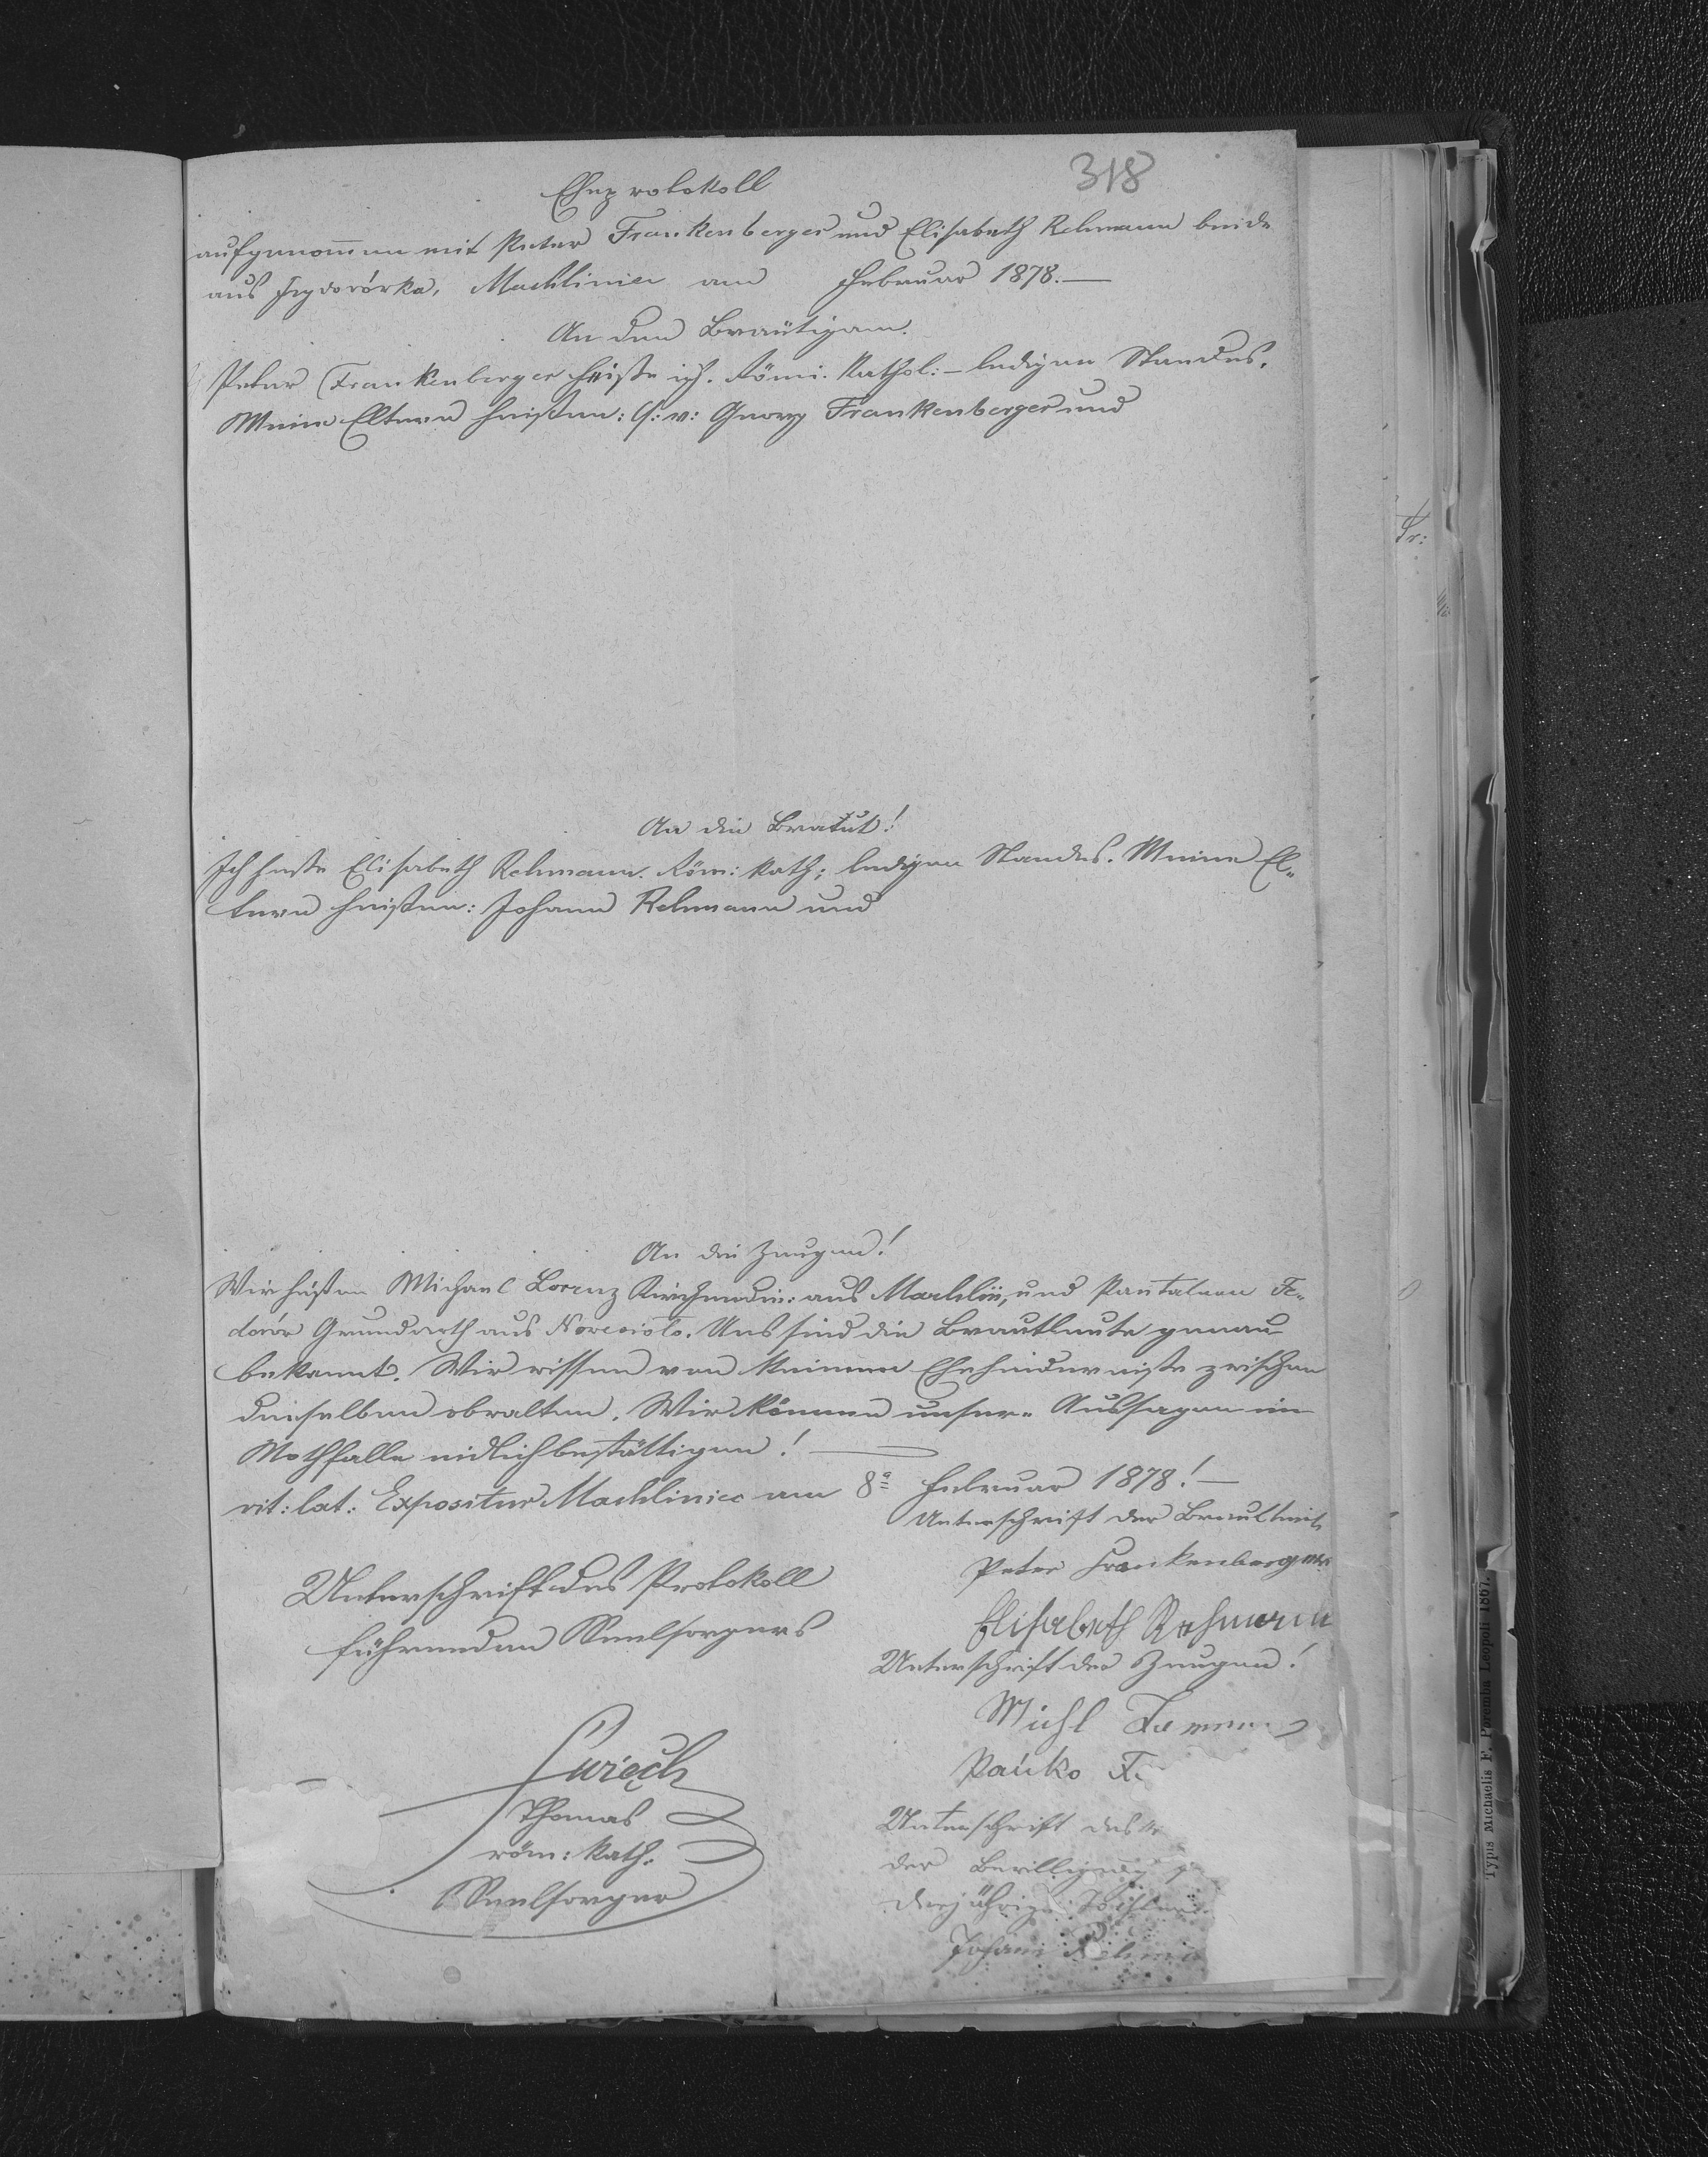 318
Eheprotokoll
aufgenommen mit Peter Frankenberger und Elisabeth Rehmann beide
aus Izydorórka, Machliniec am Februar 1878.—
An den Bräutigam.
Peter Frankenberger heiße ich. Römi. Kathol:— ledigen Standes.
Meine Eltern heißen: Georg Frankenberger und
An die Bratut!
Ich heße Elisabeth Rehmann. Röm: Kath; ledigen Standes. Meine El„
tern heißen: Johann Rehmann und
An die Zeugen!
Wir heißen Michael Lorenz aus Machlin, und Pantaleon Fe„
dorór Grundwirth aus Nowesioło. Uns sind die Brautleute genau
bekannt. Wir wissen von keinem Ehehinderniße zwischen
denselben obwalten. Wir können unser„ Aussagen im
Nothfalle eidlich bestättigen!—
rit: lat: Expositur Machliniec am 8ª Februar 1878!—
Unterschrift der Brautleute
Peter Frankenberger
Elisabeth Rehmann
Unterschrift des Protokoll
führenden Seelsorgers
Unterschrift der Zeugen!
Michl
Pańko Fe
Thomas
röm: Kath.
Seelsorger
Unterschrift des
der Bewilligung
derjährige Tochter
Johann Rehma
Fr:
Typis Michaelis F. Poremba Leopoli 1867.